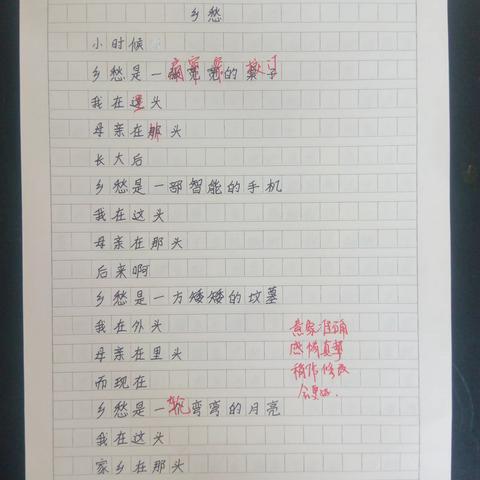 乡愁
小时候
乡愁是一扇宽宽的
我在里头
母亲在那头
长大后
乡愁是一部智能的手机
我在这头
母亲在那头
后来啊
乡愁是一方矮矮的坟墓
我在外头
母亲在里头
而现在
乡愁是一轮弯弯的月亮
我在这头
家乡在那头
意象准确
感情真挚
稍作修改
会更好.